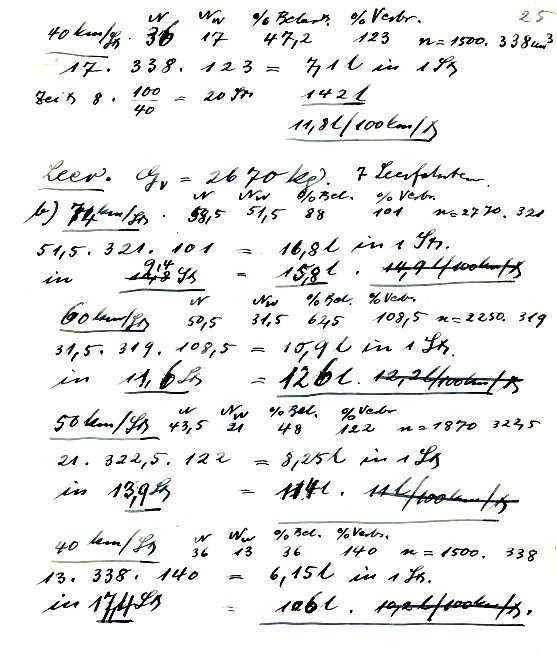 25
N Nw % Belast. % Verbr.
40 km/St. 36 17 47,2 123 n=1500. 338 cm³
17. 338. 123 = 7,1 l in 1 St
Zeit 8. 100/40 = 20 Stn 142 l
11,8 l/100 km/St
Leer. Gv = 2670 kg. 7 Leerfahrten.
N Nw % Bel. % Verbr.
b) 74 km/St. 58,5 51,5 88 101 n=2770. 321
51,5. 321. 101 = 16,8 l in 1 St.
9,4
in St = 158 l. 14,9 l/100 km/St
N Nw % Bel. % Verbr.
60 km/St 50,5 31,5 62,5 108,5 n=2250. 319
31,5. 319. 108,5 = 10,9 l in 1 St.
in 11,6 St = 126 l. 12,2 l/100 km/St
N Nw % Bel. % Verbr
50 km/St 43,5 21 48 122 n=1870 322,5
21. 322,5. 122 = 8,25 l in 1 St
in 13,9 St = 114 l. 11 l/100 km/St
N Nw % Bel. % Verbr.
40 km/St 36 13 36 140 n=1500. 338
13. 338. 140 = 6,15 l in 1 St.
in 17,4 St = 106 l. 10,2 l/100 km/St.